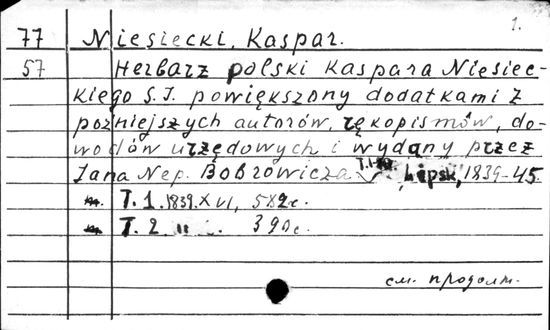 1.
77 Niesiecki, Kaspar.
57 Herbarz polski Kaspara Niesiec-
kiego S.J. powiększony dodatkami z
pozniejszych autorów, rękopismów, do-
wodów urzędowych i wydany przez
Jana Nep. Bobrowicza Lipsk, 1839-45.
T. 1. 1839. XVI, 582 c.
T. 2. 390 c.
см. продолж.